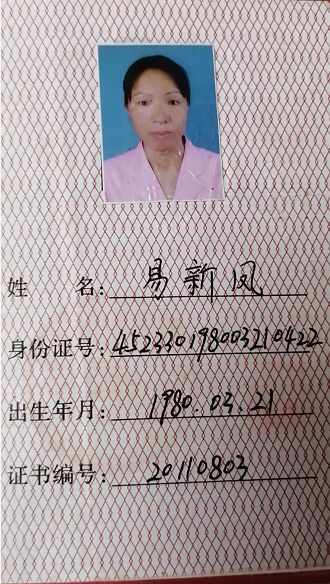 姓 名：易新凤
身份证号：452330198003210422
出生年月：1980.03.21
证书编号：20110803